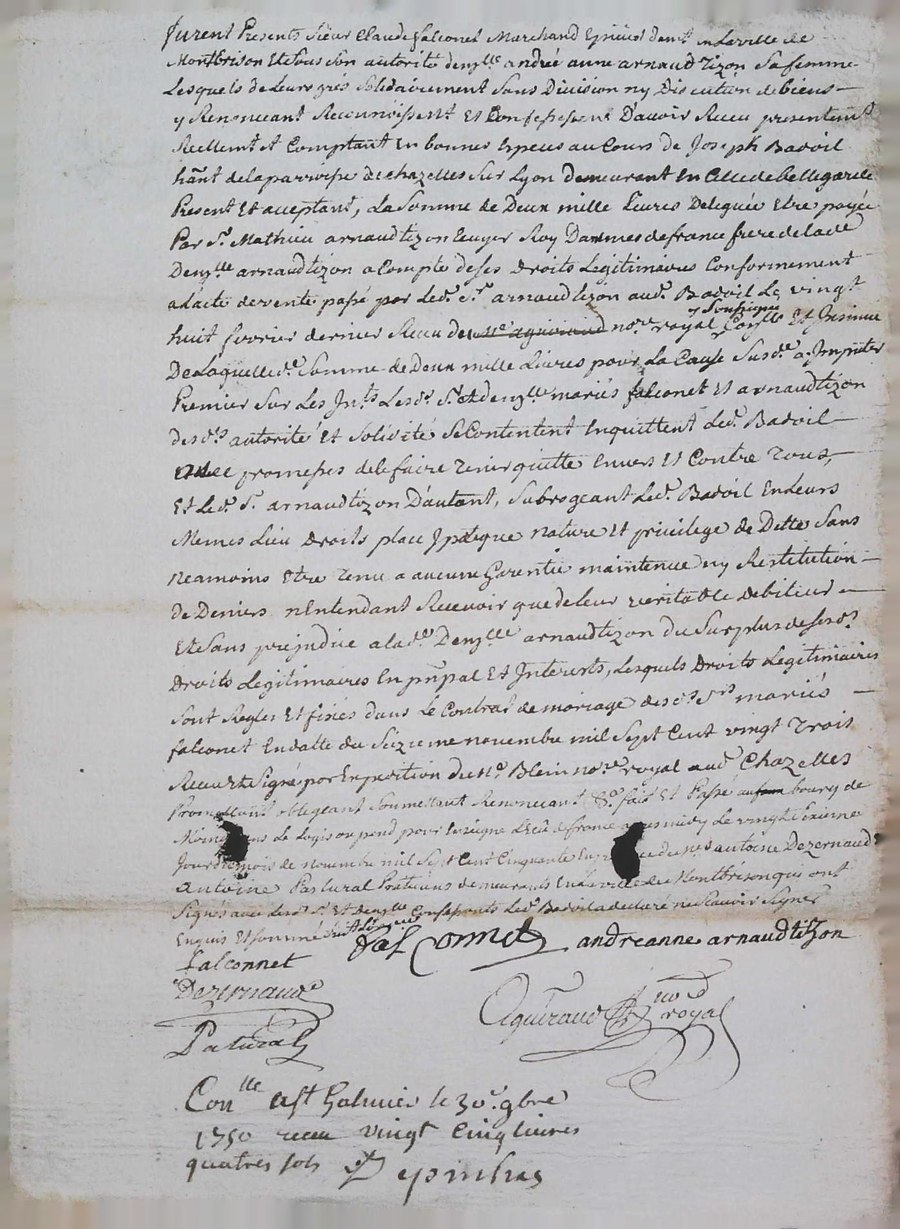 furent Presents Sieur Claude falconet Marchand Epicier dem.t en la ville de
Montbrison Et sous son autorité dem.lle andrée anne arnaud Tizon sa femme
Lesquels de Leurs grés solidairement sans Division ny Discution de biens
y Renoncant Reconnoissent et Confessent D'avoir Receu presentem.t
Reellement et Comptant En bonnes Especes au Cours de Joseph Badoil
hant de la parroisse de chazelles sur Lyon demeurant En Celle de bellegarde
Present Et aceptant, La somme de Deux mille Livres Deleguée Etre payée
Par s.r Mathieu arnaudtizon Ecuyer Roy Darmes de france frere de lad.e
Dem.lle arnaudtizon a Compte de ses Droits Legitimaires Conformement
a l'acte de vente passé par led. s.r arnaudtizon aud. Badoil Le vingt
huit fevrier dernier Receu de no.re royal y soussigné Con.lle Et Insinué
De Laquelle d.e somme de Deux mille Livres pour La Cause susd.e a Imputer
Premier sur Les Int.ts Lesd. s.r et dem.lle mariés falconet Et arnaudtizon
des d.s autorité Et solidité se Contentent Enquittent Led. Badoil
avec promesses de le faire Tenir quitte Envers Et Contre Tous,
Et Led. s.r arnaudtizon D'autant, subrogeant Led. Badoil En Leurs
Memes Lieu Droits place Ipoteque nature Et privilege de Dette sans
neamoins Etre Tenu a aucune Garentie maintenue ny Restitution
de Deniers n'Entendant Recevoir que de leur veritable debiteur
Et sans prejudice a lad.e Dem.lle arnaudtizon du surplus de sesd.
Droits Legitimaires En pn.pal Et Interests, Lesquels Droits Legitimaires
sont Regles Et fixés dans Le Contrat de mariage desd. s.rs mariés
falconet En datte du seizieme novembre mil sept Cent vingt Trois
Receu Et signé par Expedition de M.e Blein no.re royal aud. Chazelles
Promettant obligeant soumettant Renoncant &.a fait Et Passé au bourg de
Moing dans le Logis ou pend pour Enseigne L'Ecu de france apres midy Le vingt
jour du mois de novembre mil sept Cent Cinquante En presence de s.rs antoine Dezernaud
antoine Pastural Praticiens demeurants En la ville de Montbrison qui ont
signés avec lesd. s.r Et dem.lle Confessants Led. Badoil a declaré ne scavoir signer
Enquis Et sommé
falconnet andréanne arnaudtizon
falconnet
Dezernaud
Patural
Aguiraud no.re royal
Con.lle a s.t Galmier le 30.e 9bre
1750 receu vingt Cinq livres
quatres sols Depinhas